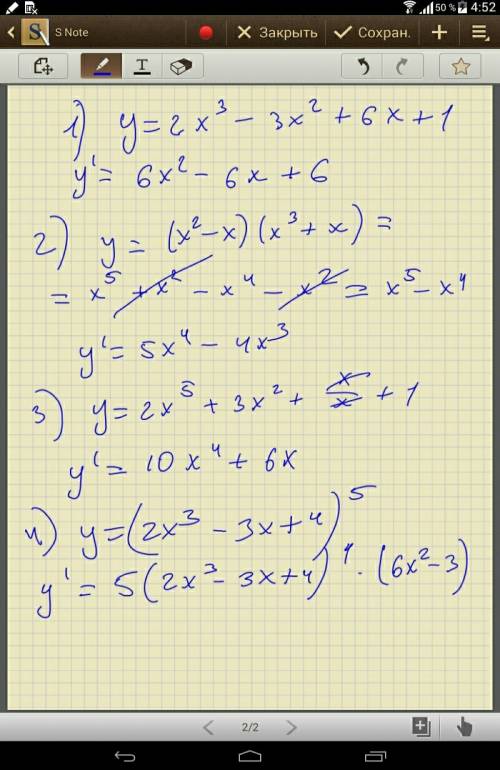 50 % 4:52
S Note Закрыть Сохран.
T
1) y = 2x³ − 3x² + 6x + 1
y' = 6x² − 6x + 6
2) y = (x² − x)(x³ + x) =
= x⁵ + x² − x⁴ − x² = x⁵ − x⁴
y' = 5x⁴ − 4x³
3) y = 2x⁵ + 3x² + x/x + 1
y' = 10x⁴ + 6x
4) y = (2x³ − 3x + 4)⁵
y' = 5(2x³ − 3x + 4)⁴ · (6x² − 3)
2/2